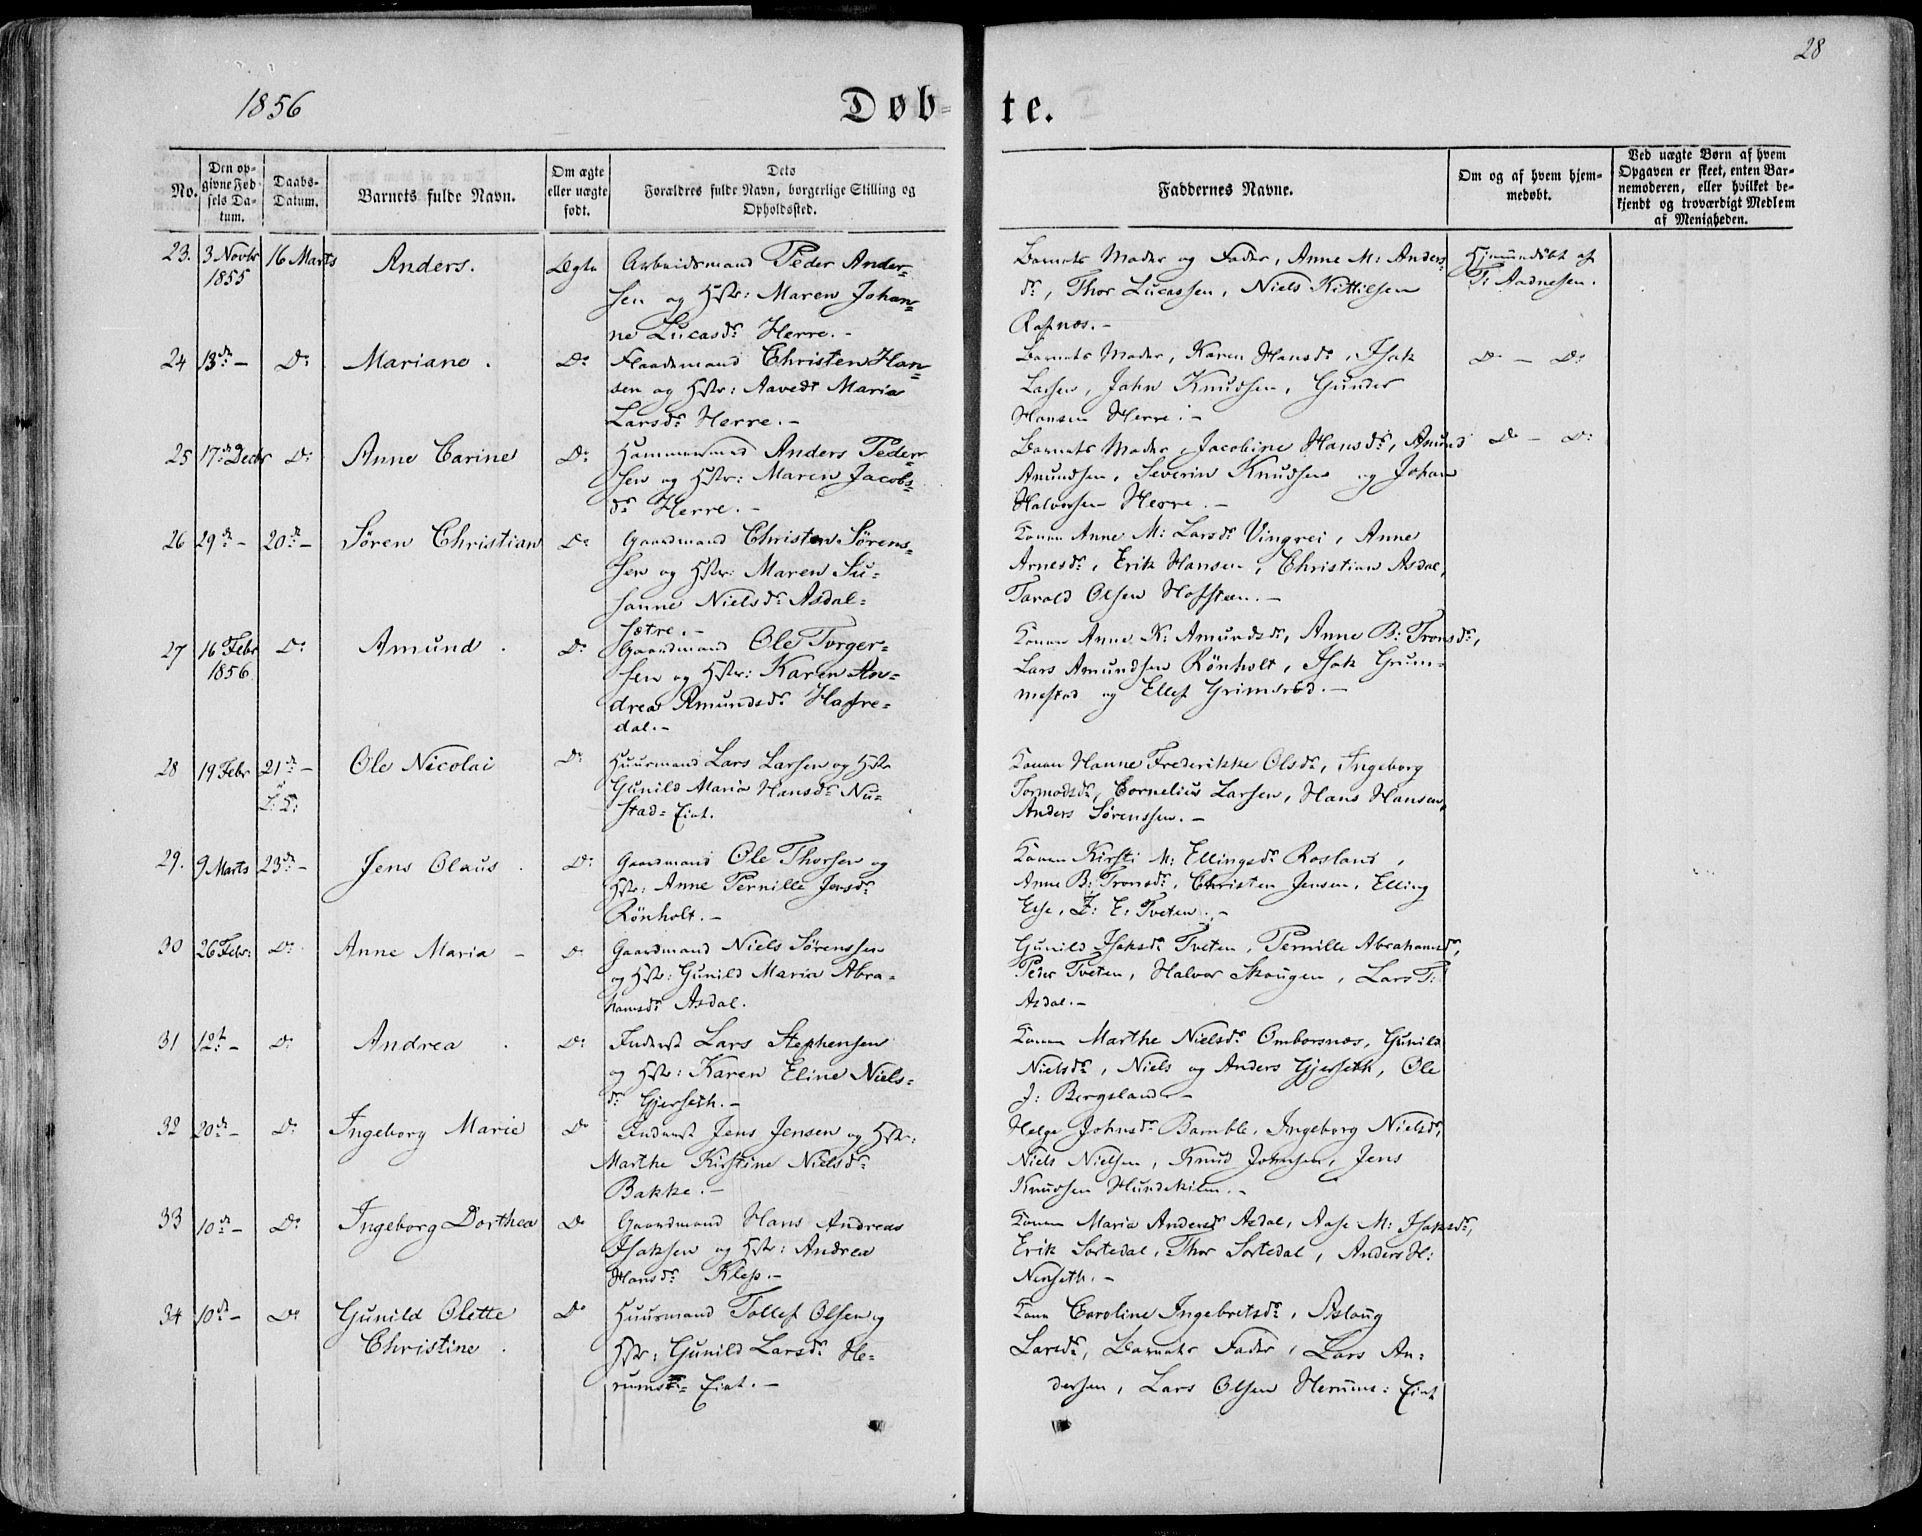 28
1856
Døb- te.
No.
Den op-
givne Fød-
sels Da-
tum.
Daabs-
Datum.
Barnets fulde Navn.
Om ægte
eller uægte
født.
Dets
Forældres fulde Navn, borgerlige Stilling og
Opholdssted.
Faddernes Navne.
Om og af hvem hjem-
medøbt.
Ved uægte Børn af hvem
Opgaven er skeet, enten Bar-
nemoderen, eller hvilket be-
kjendt og troværdigt Medlem
af Menigheden.
23. 3 Novbr 16 Marts Anders. Ægte Arbeidsmand Peder Ander-
1855
sen og Hstr: Maren Johan-
ne Lucasdr Herre.-
Barnets Moder og Fader, Anne M: Anders-
dr, Thor Lucassen, Niels Kittilsen
Rafnæs.-
Hjemmedöbt af
T: Aadnesen.
24 13de - Do Mariane. Do Flaadsmand Christen Han-
sen og Hstr: Aavedt Maria
Larsdr Herre.-
Barnets Moder, Karen Hansdr, Isak
Larsen, John Knudsen, Gunder
Hansen Herre.-
Do - Do
25 17de Decbr Do Anne Carine Do Hammersmed Anders Peder-
sen og Hstr: Maren Jacobs-
dr Herre.-
Barnets Moder, Jacobine Hansdr, Amund
Amundsen, Severin Knudsen og Johan
Halvorsen Herre.-
Do - Do
26 29de - 20de - Søren Christian Do Gaardmand Christen Sørens-
sen og Hstr: Maren Su-
sanne Nielsdr Asdal-
sætre.-
Konen Anne M: Larsdr Vingrei, Anne
Arnesdr, Erik Hansen, Christian Asdal,
Tarald Olsen Hafsten.-
27 16 Febr Do Amund. Do Gaardmand Ole Torger-
1856
sen og Hstr: Karen An-
drea Amundsdr Hafre-
dal.-
Konen Anne K: Amundsdr, Anne B: Tronsdr,
Lars Amundsen Rönholt, Isak Grum-
mestad og Ellef Grimsrød.-
28 19 Febr 21de - Ole Nicolai Do Huusmand Lars Larsen og Hstr
Gunild Maria Hansdr Nu-
stad-Eiet.
Konen Hanne Frederikke Olsdr, Ingeborg
Tormodsdr, Cornelius Larsen, Hans Hansen,
Anders Sørenssen.-
29. 9 Marts 23de - Jens Olaus. Do Gaardmand Ole Thorsen og
Hstr: Anne Pernille Jensdr
Rönholt.-
Konen Kirsti M: Ellingsdr Rosland,
Anne B: Tronsdr, Christen Jensen, Elling
E: Tveten.-
30 26 Febr: Do Anne Maria - Do Gaardmand Niels Sørenssen
og Hstr: Gunild Maria Abra-
hamsdr Asdal.
Gunild Isaksdr Tveten, Pernille Abrahamsdr,
Peder Tveten, Halvor Skougen, Lars P:
Asdal.-
31 12te - Do Andrea. Do Inderst Lars Stephensen
og Hstr: Karen Eline Niels-
dr Gjerseth.-
Konen Marthe Nielsdr Omborsnæs, Gunild
Nielsdr, Niels og Anders Gjerseth, Ole
J: Bergsland.-
32 20de - Do Ingeborg Marie Do Inderst Jens Jensen og Hstr:
Marthe Kirstine Nielsdr
Bakke.-
Helge Johnsdr Bamble, Ingeborg Nielsdr,
Niels Nielsen, Knud Johnsen, Jens
Knudsen Hundekilen.-
33 10de - Do Ingeborg Dorthea Do Gaardmand Hans Andreas
Isaksen og Hstr: Andrea
Hansdr Klep.-
Konen Maria Andersdr Asdal, Aase M: Isaksdr,
Erik Sortedal, Thor Sortedal, Anders H:
Nenseth.-
34 10de - Do Gunild Olette Do Huusmand Tollef Olsen og
Christine.
Hstr: Gunild Larsdr He-
rums- Eiet.-
Kone Caroline Ingebretsdr, Aslaug
Larsdr, Barnets Fader, Lars An-
dersen, Lars Olsen Herums: Eiet